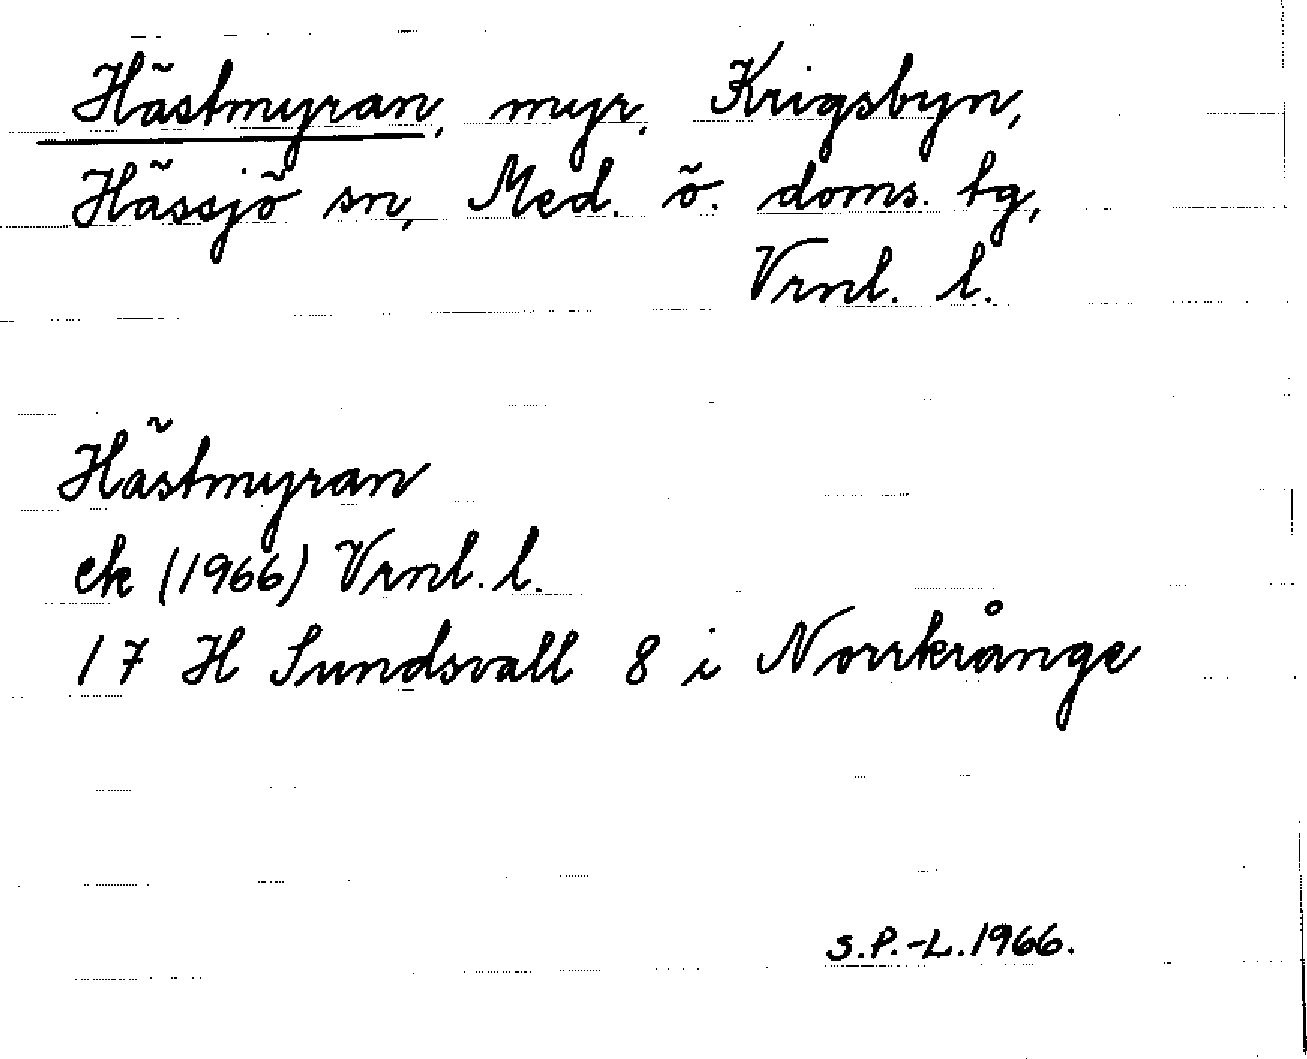 Hästmyran, myr, Krigsbyn,
Hässjö sn, Med. ö. doms. tg,
Vrnl. l.
Hästmyran
ek (1966) Vrnl. l.
17 H Sundsvall 8 i Norrkrånge
S.P.-L. 1966.